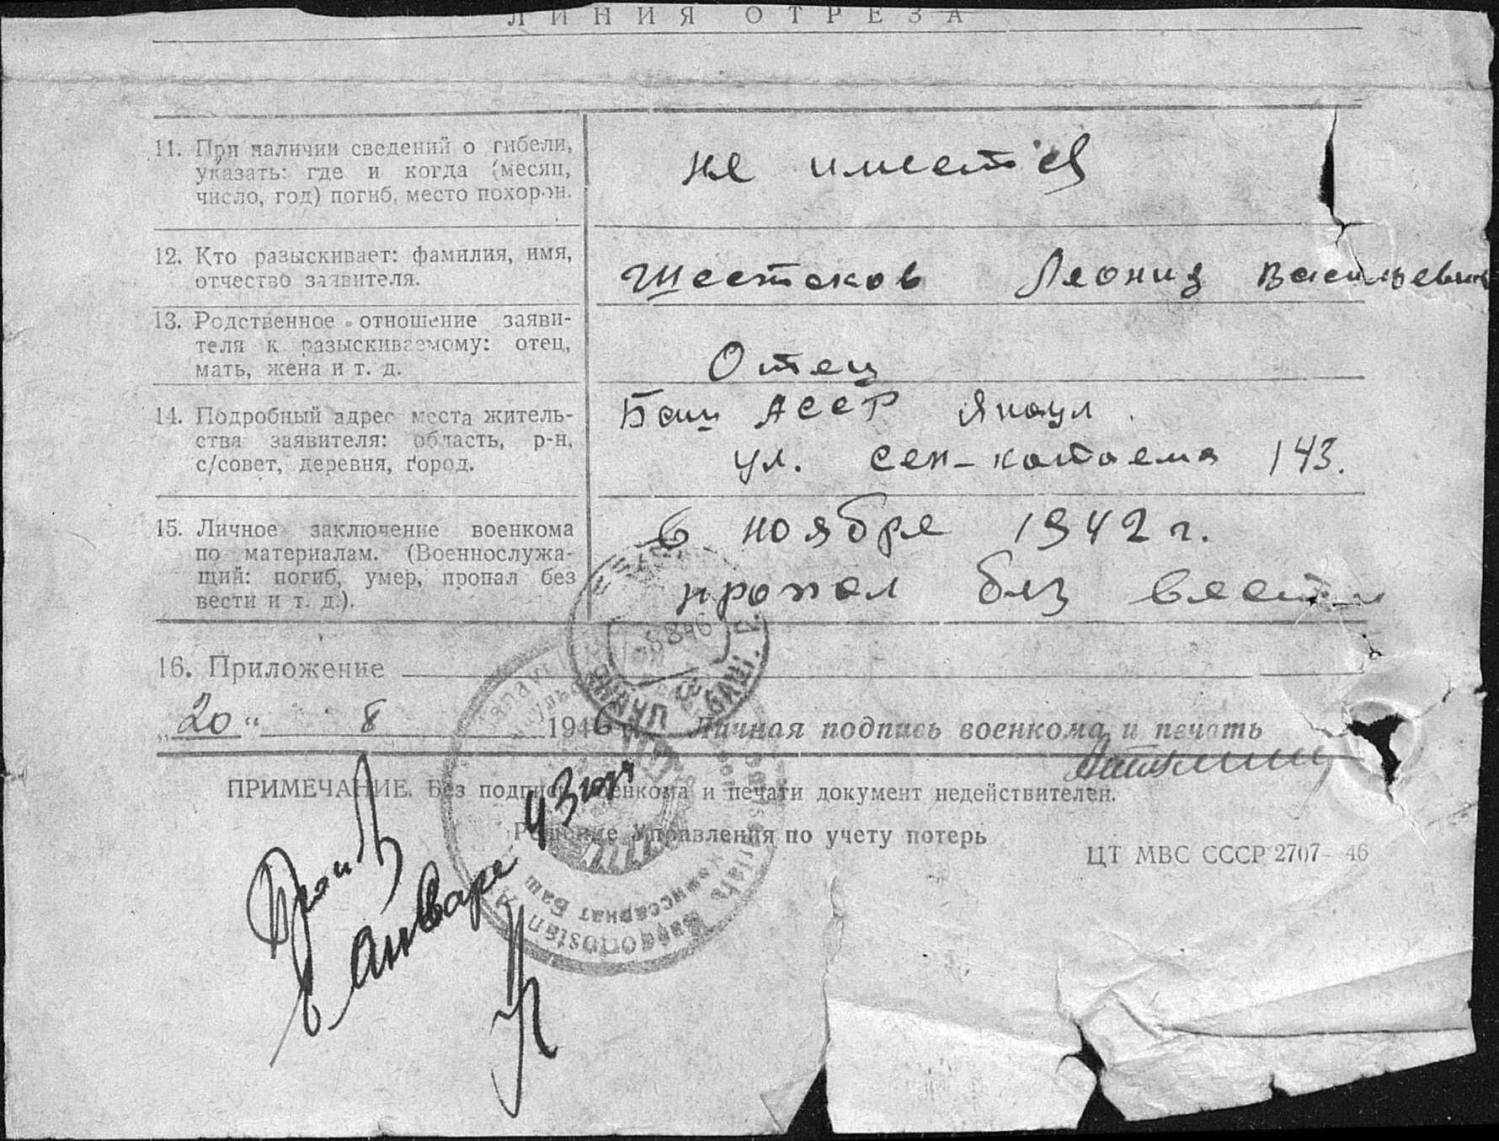 ЛИНИЯ ОТРЕЗА
11. При наличии сведений о гибели,
указать: где и когда (месяц,
число, год) погиб, место похорон.
не имеется
12. Кто разыскивает: фамилия, имя,
отчество заявителя.
Шестаков Леонид Васильевич
13. Родственное отношение заяви-
теля к разыскиваемому: отец,
мать, жена и т. д.
Отец
14. Подробный адрес места житель-
ства заявителя: область, р-н,
с/совет, деревня, город.
Баш АССР Янаул.
ул. сен-катаема 143.
15. Личное заключение военкома
по материалам. (Военнослужа-
щий: погиб, умер, пропал без
вести и т. д.).
6 ноября 1942 г.
пропал без вести
16. Приложение
„20“ 8 1946 г. Личная подпись военкома и печать
ПРИМЕЧАНИЕ. Без подписи военкома и печати документ недействителен.
Решение Управления по учету потерь
ЦТ МВС СССР 2707—46
Январе 43 года
ЯНАУЛ БАШ.